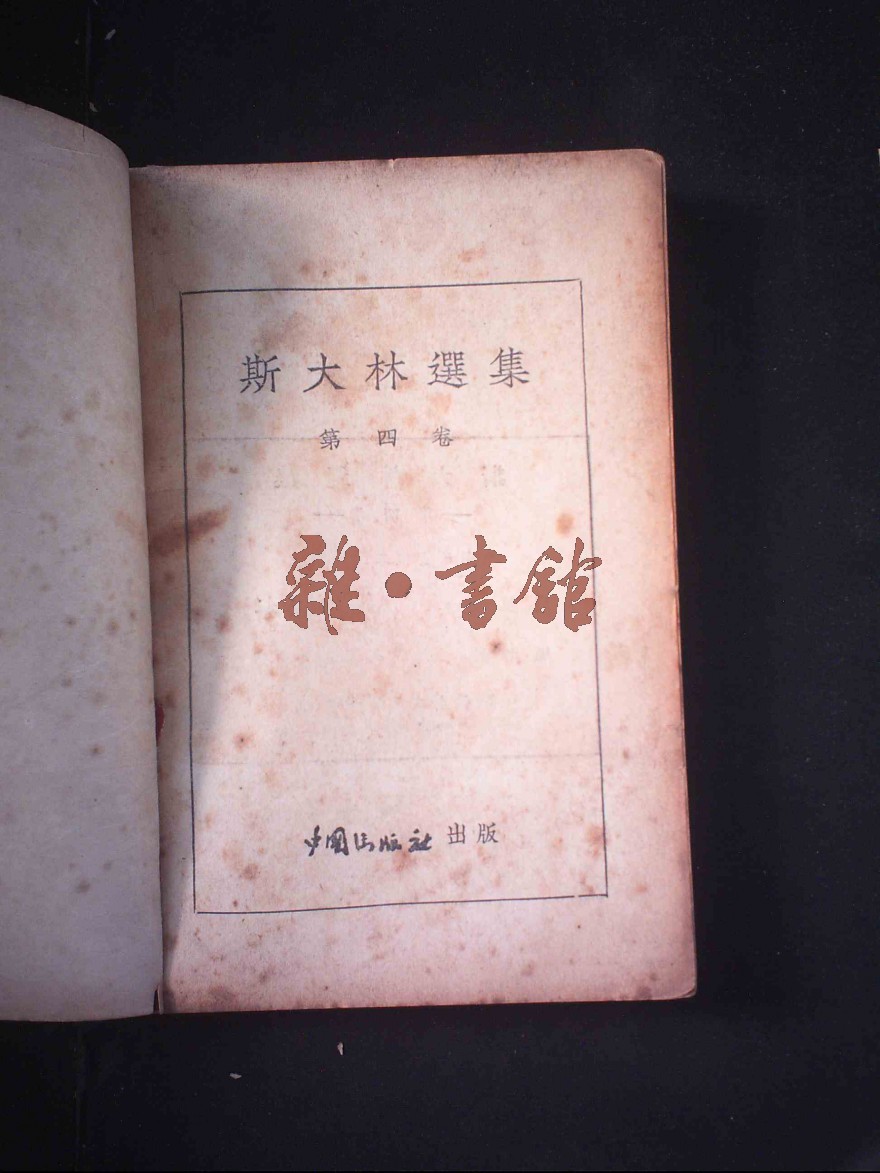 斯大林選集
第四卷
雜·書館
中國出版社出版